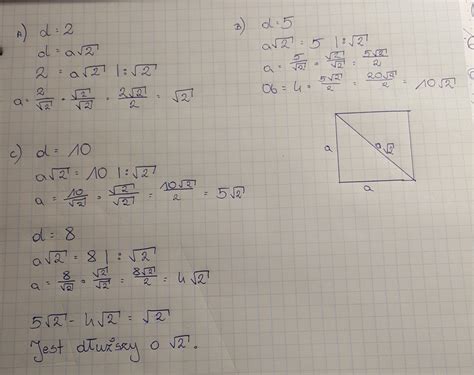 A) d = 2
d = a√2
2 = a√2 |:√2
a = 2/√2 · √2/√2 = 2√2/2 = √2
B) d = 5
a√2 = 5 |:√2
a = 5/√2 · √2/√2 = 5√2/2
Ob = 4 · 5√2/2 = 20√2/2 = 10√2
a
a√2
a
C) d = 10
a√2 = 10 |:√2
a = 10/√2 · √2/√2 = 10√2/2 = 5√2
d = 8
a√2 = 8 |:√2
a = 8/√2 · √2/√2 = 8√2/2 = 4√2
5√2 - 4√2 = √2
Jest dłuższy o √2.